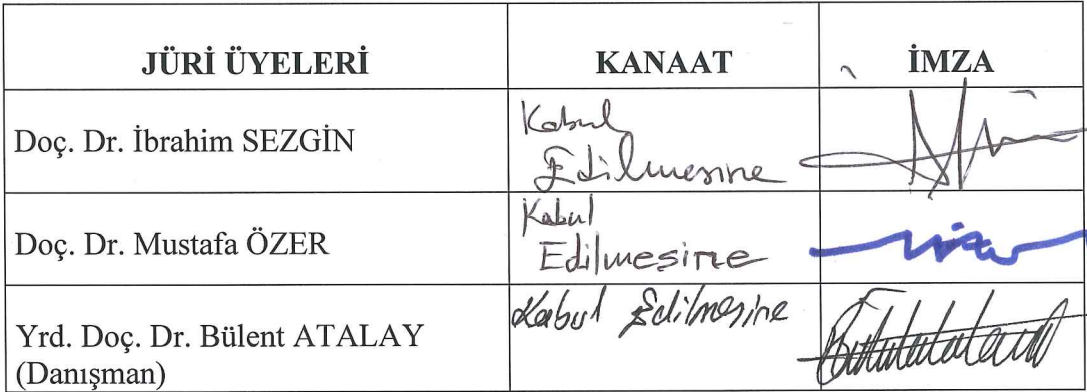 JÜRİ ÜYELERİ KANAAT İMZA
Doç. Dr. İbrahim SEZGİN Kabul
Edilmesine
Doç. Dr. Mustafa ÖZER Kabul
Edilmesine
Yrd. Doç. Dr. Bülent ATALAY Kabul Edilmesine
(Danışman)